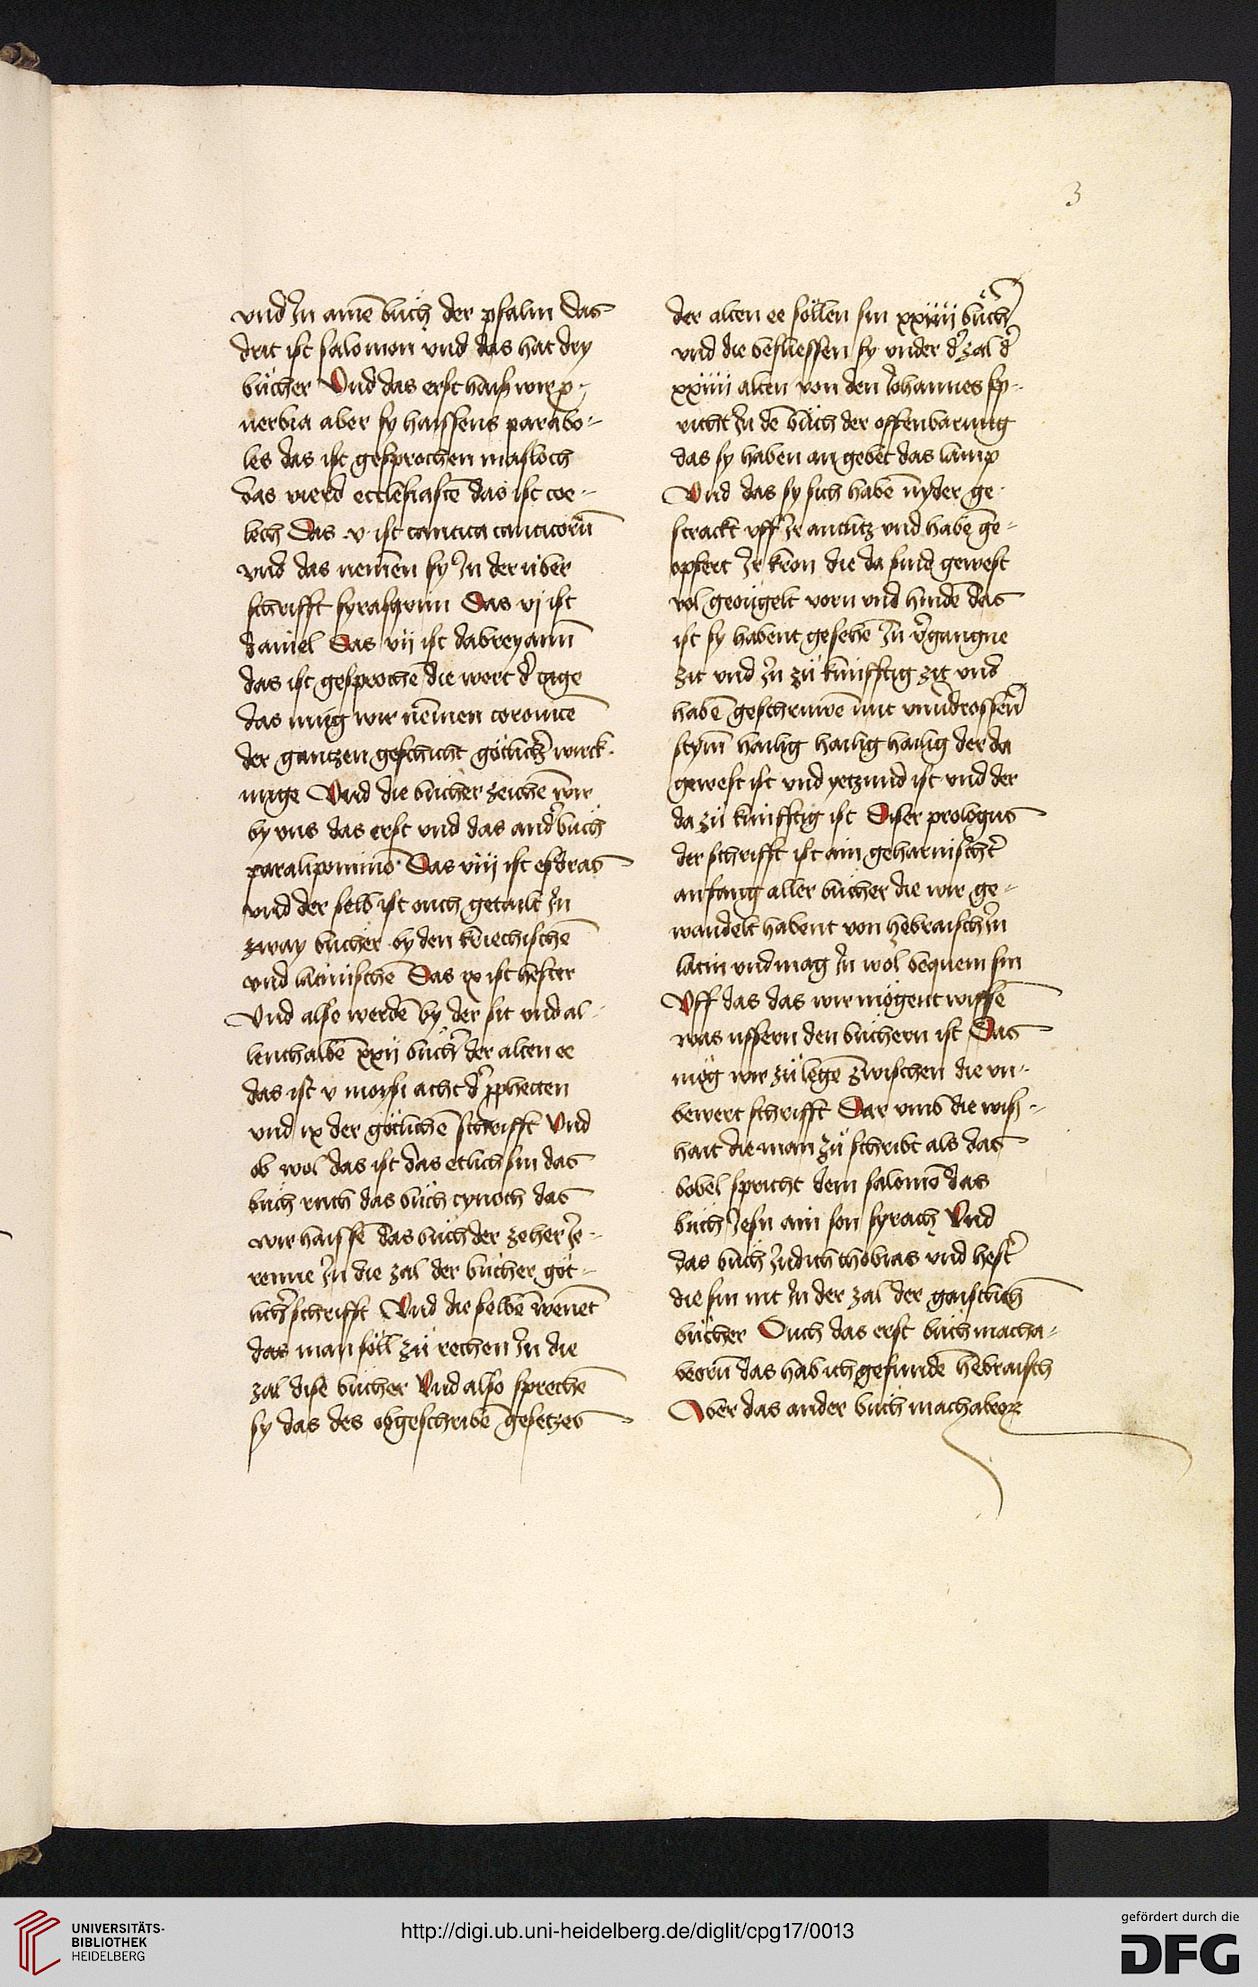 3
vnd Jn aine͂ buͦch der psalm Das
drit ist salomon vnd das hat dry
buͤcher Vnd das erst haiß wir p̱-
uerbia aber sy haissens parabo-
les das ist gesprochen masloch
das vierd ecclesiaste͂ das ist coe-
lech Das v ist cantica canticoru͂
vnd das nemen sy Jn der vͤber
schrifft syrasyrim Das vj ist
daniel Das vij ist dabreyami͂
das ist gesproche͂ die wort d' tage
das mug wir nemen coronice͂
der gantzen geschicht goͤtlich' wirk
unge Vnd die buͤcher zeiche͂ wir
by vns das erst vnd das and' buͦch
paralipomino͂ Das viij ist esdras
vnd der selb ist ouch getailt Jn
zway buͤcher by den kriechische͂
vnd latinische͂ Das ix ist hester
Vnd also werde͂ by der sit vnd al-
lenthalbe͂ xxij buͤch' der alten ee
das ist v moysi acht d' ꝓpheten
vnd ix der goͤtliche͂ schrifft Vnd
ob wol das ist das etlich sin das
buͦch ruth das buͦch cynoth das
wir haisse͂ das buͦch der zeher Je-
remie Jn die zal der buͤcher goͤt-
lich' schrifft Vnd die selbe͂ wenet
das man soͤll zuͦ rechen Jn die
zal dise buͤcher Vnd also spreche͂
sy das des obgeschribe͂ gesetzes
der alten ee soͤllen sin xxiiij buͤch'
vnd die besliessen sy vnder d' zal d'
xxiiij alten von den Johannes sp-
richt Jn de͂ buͦch der offenbarung
das sy haben an gebet das lamp
Vnd das sy sich habe͂ nyder ge-
strackt vff Jr antlitz vnd habe͂ ge-
opfert Jr kron die da sind gewest
wol geoͤugelt vorn vnd hinde͂ das
ist sy habent gesehe͂ Jn v'gangne
zit vnd Jn zuͦ kuͤnfftig zit vnd
habe͂ geschruwe͂ mit vnu'drossen'
stym͂ hailig hailig hailig der da
gewest ist vnd yetzund ist vnd der
da zuͦ kuͤnfftig ist Diser prologus
der schrifft ist ain geharnischt'
anfang aller buͤcher die wir ge-
wandelt habent von hebraisch Jn
latin vnd mag Jn wol bequem sin
Vff das das wir moͤgent wisse͂
was ussern den buͤchern ist Das
moͤg wir zuͦ lege͂ zwischen die vn-
bewert schrifft Dar vmb die wiß-
hait die man zuͦ schribt als das
bobel spricht dem salomo͂ das
buͦch Jesu ain son syrach Vnd
das buͦch Judich thobias vnd hest'
die sin nit Jn der zal der gaistlich͂
buͤcher Ouch das erst buͦch macha-
beoru͂ das hab ich gefunde͂ hebraisch
Aber das ander buͦch machabeoꝝ
UNIVERSITÄTS-
BIBLIOTHEK
HEIDELBERG
http://digi.ub.uni-heidelberg.de/diglit/cpg17/0013
gefördert durch die
DFG